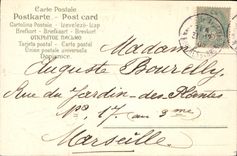 Carte Postale
Postkarte - Post card
Cartolina Postale - Levelező-Lap
Brefkort - Briefkaart - Brevkort
ОТКРЫТОЕ ПИСЬМО
Tarjeta postal
Union postale universelle
Dopisnice.
Madame
Auguste Bourelly
Rue du Jardin-des-Plantes
No. 17. au 3me
Marseille.